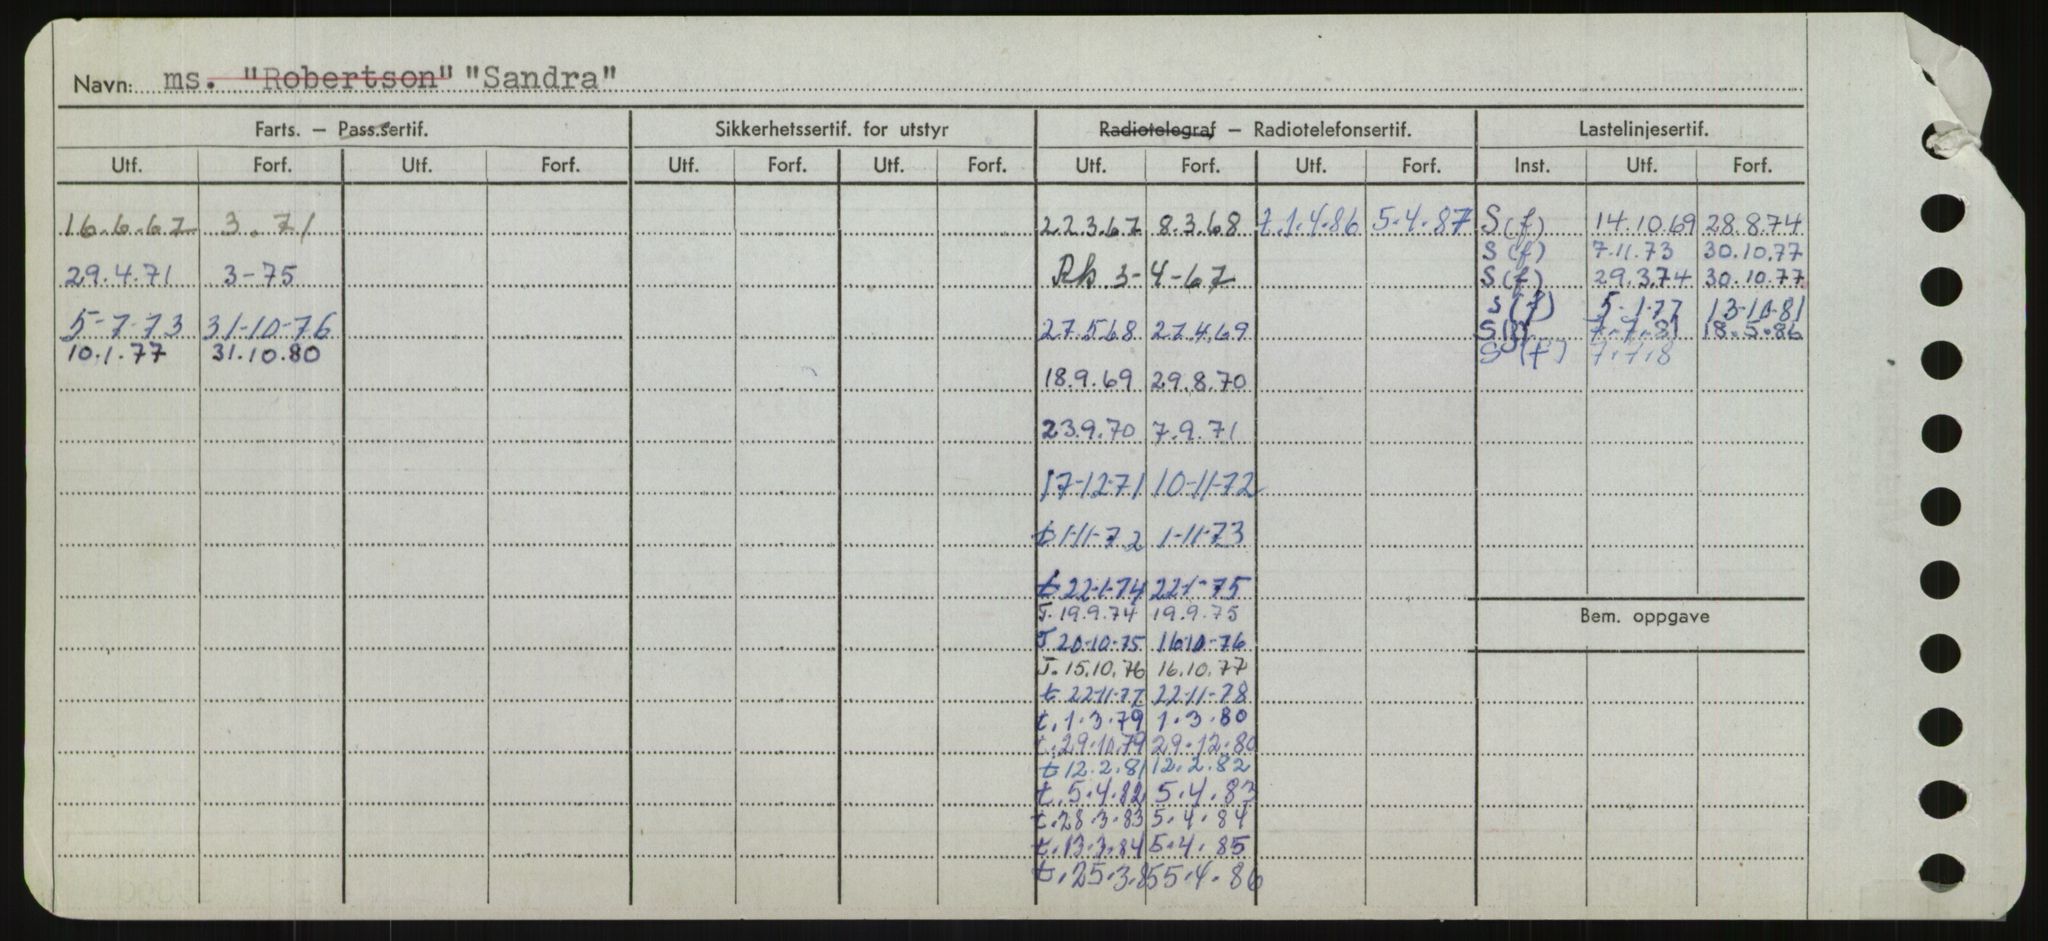 Navn: ms. "Robertson" "Sandra"
Farts. – Pass.sertif. Sikkerhetssertif. for utstyr Radiotelegraf – Radiotelefonsertif. Lastelinjesertif.
Utf. Forf. Utf. Forf. Utf. Forf. Utf. Forf. Utf. Forf. Utf. Forf. Inst. Utf. Forf.
16.6.67 3.71 22.3.67 8.3.68 2.1.4.86 5.4.87 S(f) 14.10.69 28.8.74
S(f) 7.11.73 30.10.77
29.4.71 3-75 Rh 3-4-67 S(f) 29.3.74 30.10.77
S(f) 5-1-77 13-10-81
5-7-73 31-10-76 27.5.68 27.4.69 S(f) 7.7.81 18.5.86
10.1.77 31.10.80 S(f) 7.7.8
18.9.69 29.8.70
23.9.70 7.9.71
17-12-71 10-11-72
t 1-11-72 1-11-73
t 22-1-74 22-1-75
T. 19.9.74 19.9.75
Bem. oppgave
T 20-10-75 16-10-76
T. 15.10.76 16.10.77
t. 22-11-77 22-11-78
t. 1.3.79 1.3.80
t. 29.10.79 29.12.80
t 12.2.81 12.2.82
t. 5.4.82 5.4.83
t. 28.3.83 5.4.84
t. 13.3.84 5.4.85
t. 25.3.85 5.4.86